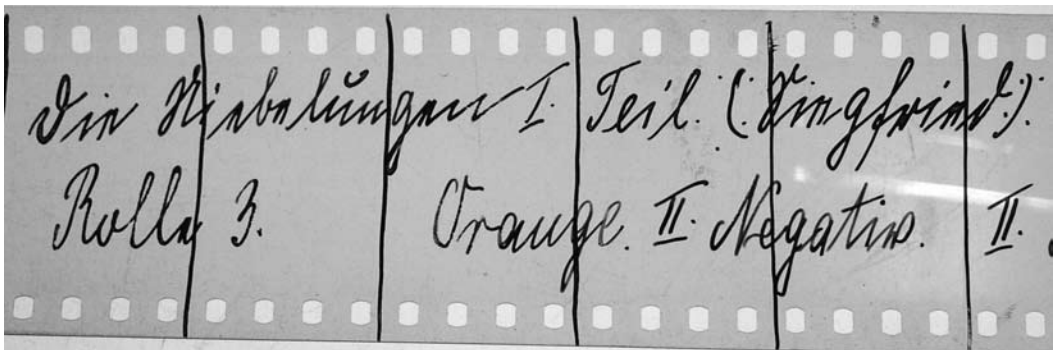 Die Niebelungen I. Teil. (Siegfried.).
Rolle 3. Orange. II. Negativ. II.